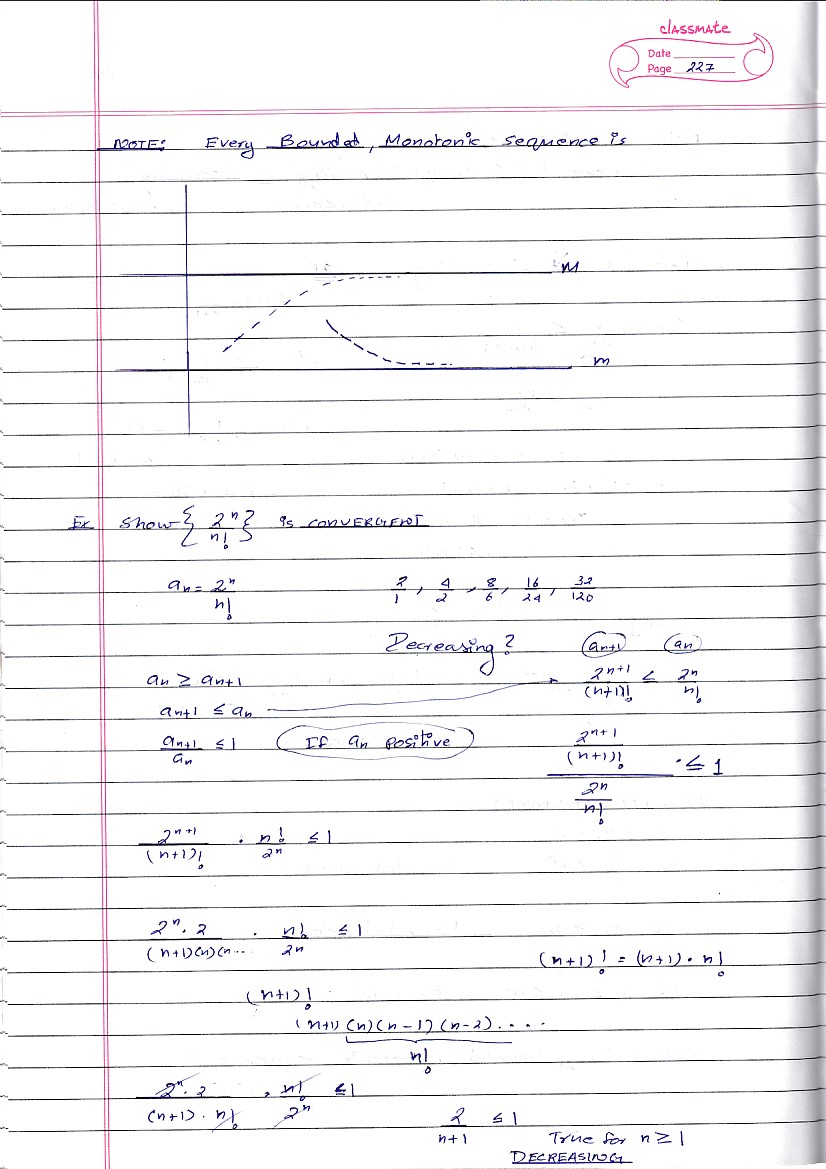 classmate
Date
Page 227
NOTE: Every Bounded, Monotonic sequence is
M
m
Ex Show { 2^n / n! } is CONVERGENT
an = 2^n / n!    2/1, 4/2, 8/6, 16/24, 32/120
Decreasing? an+1 an
an ≥ an+1    2^n+1 / (n+1)! ≤ 2^n / n!
an+1 ≤ an
an+1 / an ≤ 1 If an positive    2^n+1 / (n+1)! / 2^n / n! ≤ 1
2^n+1 / (n+1)! · n! / 2^n ≤ 1
2^n · 2 / (n+1)(n)(n... · n! / 2^n ≤ 1
(n+1)! = (n+1) · n!
(n+1)!
(n+1)(n)(n-1)(n-2)....
n!
2^n · 2 / (n+1) · n! · n! / 2^n ≤ 1
2 / n+1 ≤ 1 True for n ≥ 1
DECREASING